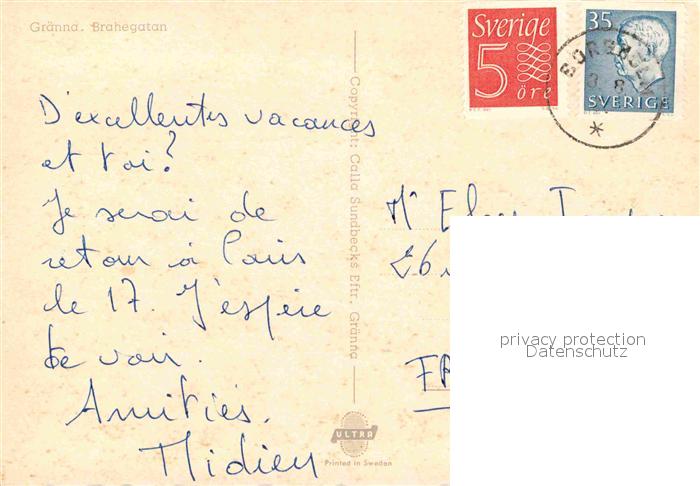 Gränna. Brahegatan
Sverige
5
öre
35
SVERIGE
D'excellentes vacances
et toi?
Je serai de
retour à Paris
le 17. J'espère
te voir.
Amitiés.
Copyright: Calla Sundbecks Eftr. Gränna
ULTRA
Printed in Sweden
26
privacy protection
Datenschutz